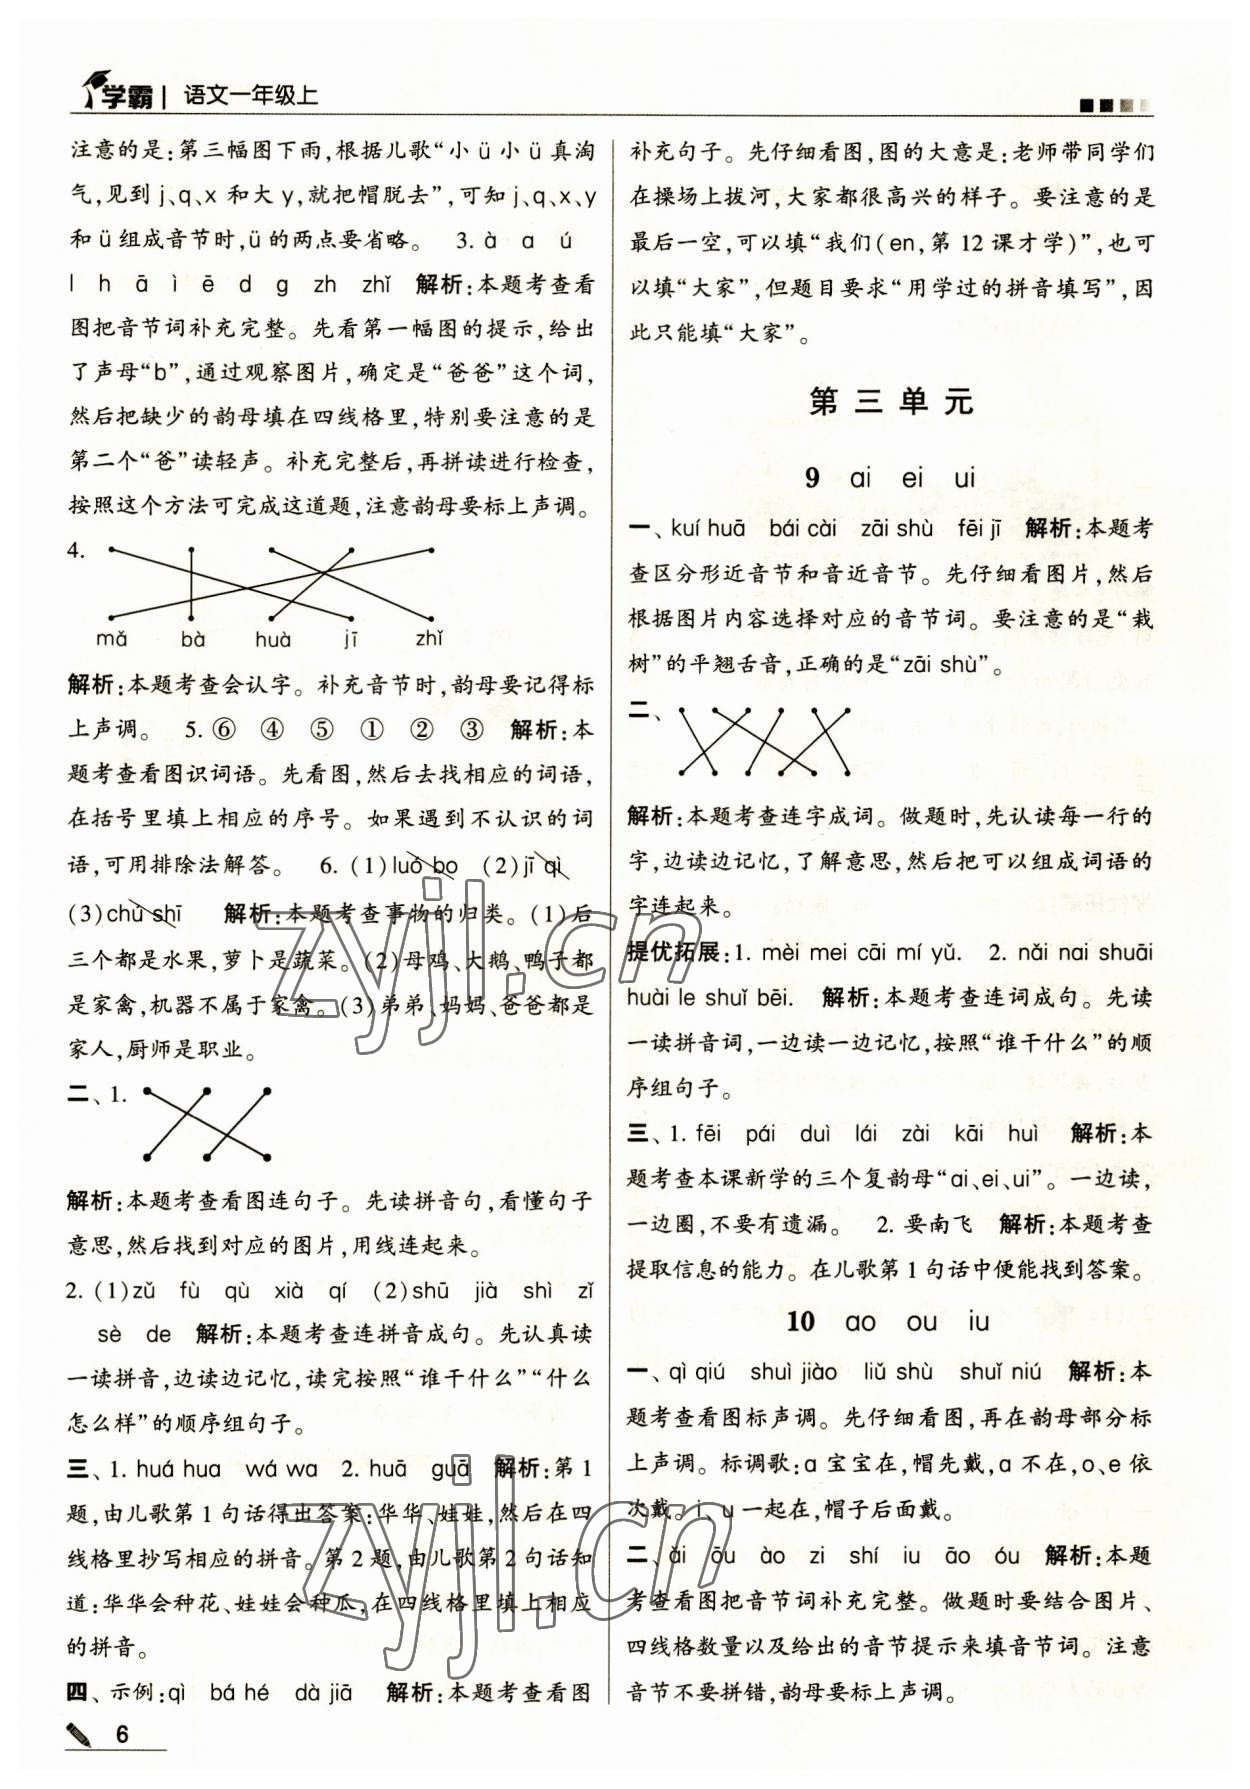 学霸 | 语文一年级上
注意的是:第三幅图下雨,根据儿歌“小 ü 小 ü 真淘
气,见到 j、q、x 和大 y,就把帽脱去”,可知 j、q、x、y
和 ü 组成音节时,ü 的两点要省略。 3. à a ú
l h ā ì ē d g zh zhǐ 解析:本题考查看
图把音节词补充完整。先看第一幅图的提示,给出
了声母“b”,通过观察图片,确定是“爸爸”这个词,
然后把缺少的韵母填在四线格里,特别要注意的是
第二个“爸”读轻声。补充完整后,再拼读进行检查,
按照这个方法可完成这道题,注意韵母要标上声调。
4.
mǎ bà huà jī zhǐ
解析:本题考查会认字。补充音节时,韵母要记得标
上声调。 5. ⑥ ④ ⑤ ① ② ③ 解析:本
题考查看图识词语。先看图,然后去找相应的词语,
在括号里填上相应的序号。如果遇到不认识的词
语,可用排除法解答。 6. (1)luó bo (2)jī qì
(3)chú shī 解析:本题考查事物的归类。(1)后
三个都是水果,萝卜是蔬菜。(2)母鸡、大鹅、鸭子都
是家禽,机器不属于家禽。(3)弟弟、妈妈、爸爸都是
家人,厨师是职业。
二、1.
解析:本题考查看图连句子。先读拼音句,看懂句子
意思,然后找到对应的图片,用线连起来。
2. (1)zǔ fù qù xià qí (2)shū jià shì zǐ
sè de 解析:本题考查连拼音成句。先认真读
一读拼音,边读边记忆,读完按照“谁干什么”“什么
怎么样”的顺序组句子。
三、1. huá hua wá wa 2. huā guā 解析:第 1
题,由儿歌第 1 句话得出答案:华华、娃娃,然后在四
线格里抄写相应的拼音。第 2 题,由儿歌第 2 句话知
道:华华会种花、娃娃会种瓜,在四线格里填上相应
的拼音。
四、示例:qì bá hé dà jiā 解析:本题考查看图
6
补充句子。先仔细看图,图的大意是:老师带同学们
在操场上拔河,大家都很高兴的样子。要注意的是
最后一空,可以填“我们(en,第 12 课才学)”,也可
以填“大家”,但题目要求“用学过的拼音填写”,因
此只能填“大家”。
第 三 单 元
9 ai ei ui
一、kuí huā bái cài zāi shù fēi jī 解析:本题考
查区分形近音节和音近音节。先仔细看图片,然后
根据图片内容选择对应的音节词。要注意的是“栽
树”的平翘舌音,正确的是“zāi shù”。
二、
解析:本题考查连字成词。做题时,先认读每一行的
字,边读边记忆,了解意思,然后把可以组成词语的
字连起来。
提优拓展:1. mèi mei cāi mí yǔ. 2. nǎi nai shuāi
huài le shuǐ bēi. 解析:本题考查连词成句。先读
一读拼音词,一边读一边记忆,按照“谁干什么”的顺
序组句子。
三、1. fēi pái duì lái zài kāi huì 解析:本
题考查本课新学的三个复韵母“ai、ei、ui”。一边读,
一边圈,不要有遗漏。 2. 要南飞 解析:本题考查
提取信息的能力。在儿歌第 1 句话中便能找到答案。
10 ao ou iu
一、qì qiú shuì jiào liǔ shù shuǐ niú 解析:本
题考查看图标声调。先仔细看图,再在韵母部分标
上声调。标调歌:a 宝宝在,帽先戴,a 不在,o、e 依
次戴。i、u 一起在,帽子后面戴。
二、ài ōu ào zi shí iu āo óu 解析:本题
考查看图把音节词补充完整。做题时要结合图片、
四线格数量以及给出的音节提示来填音节词。注意
音节不要拼错,韵母要标上声调。
zyjl.cn
zyjl.cn